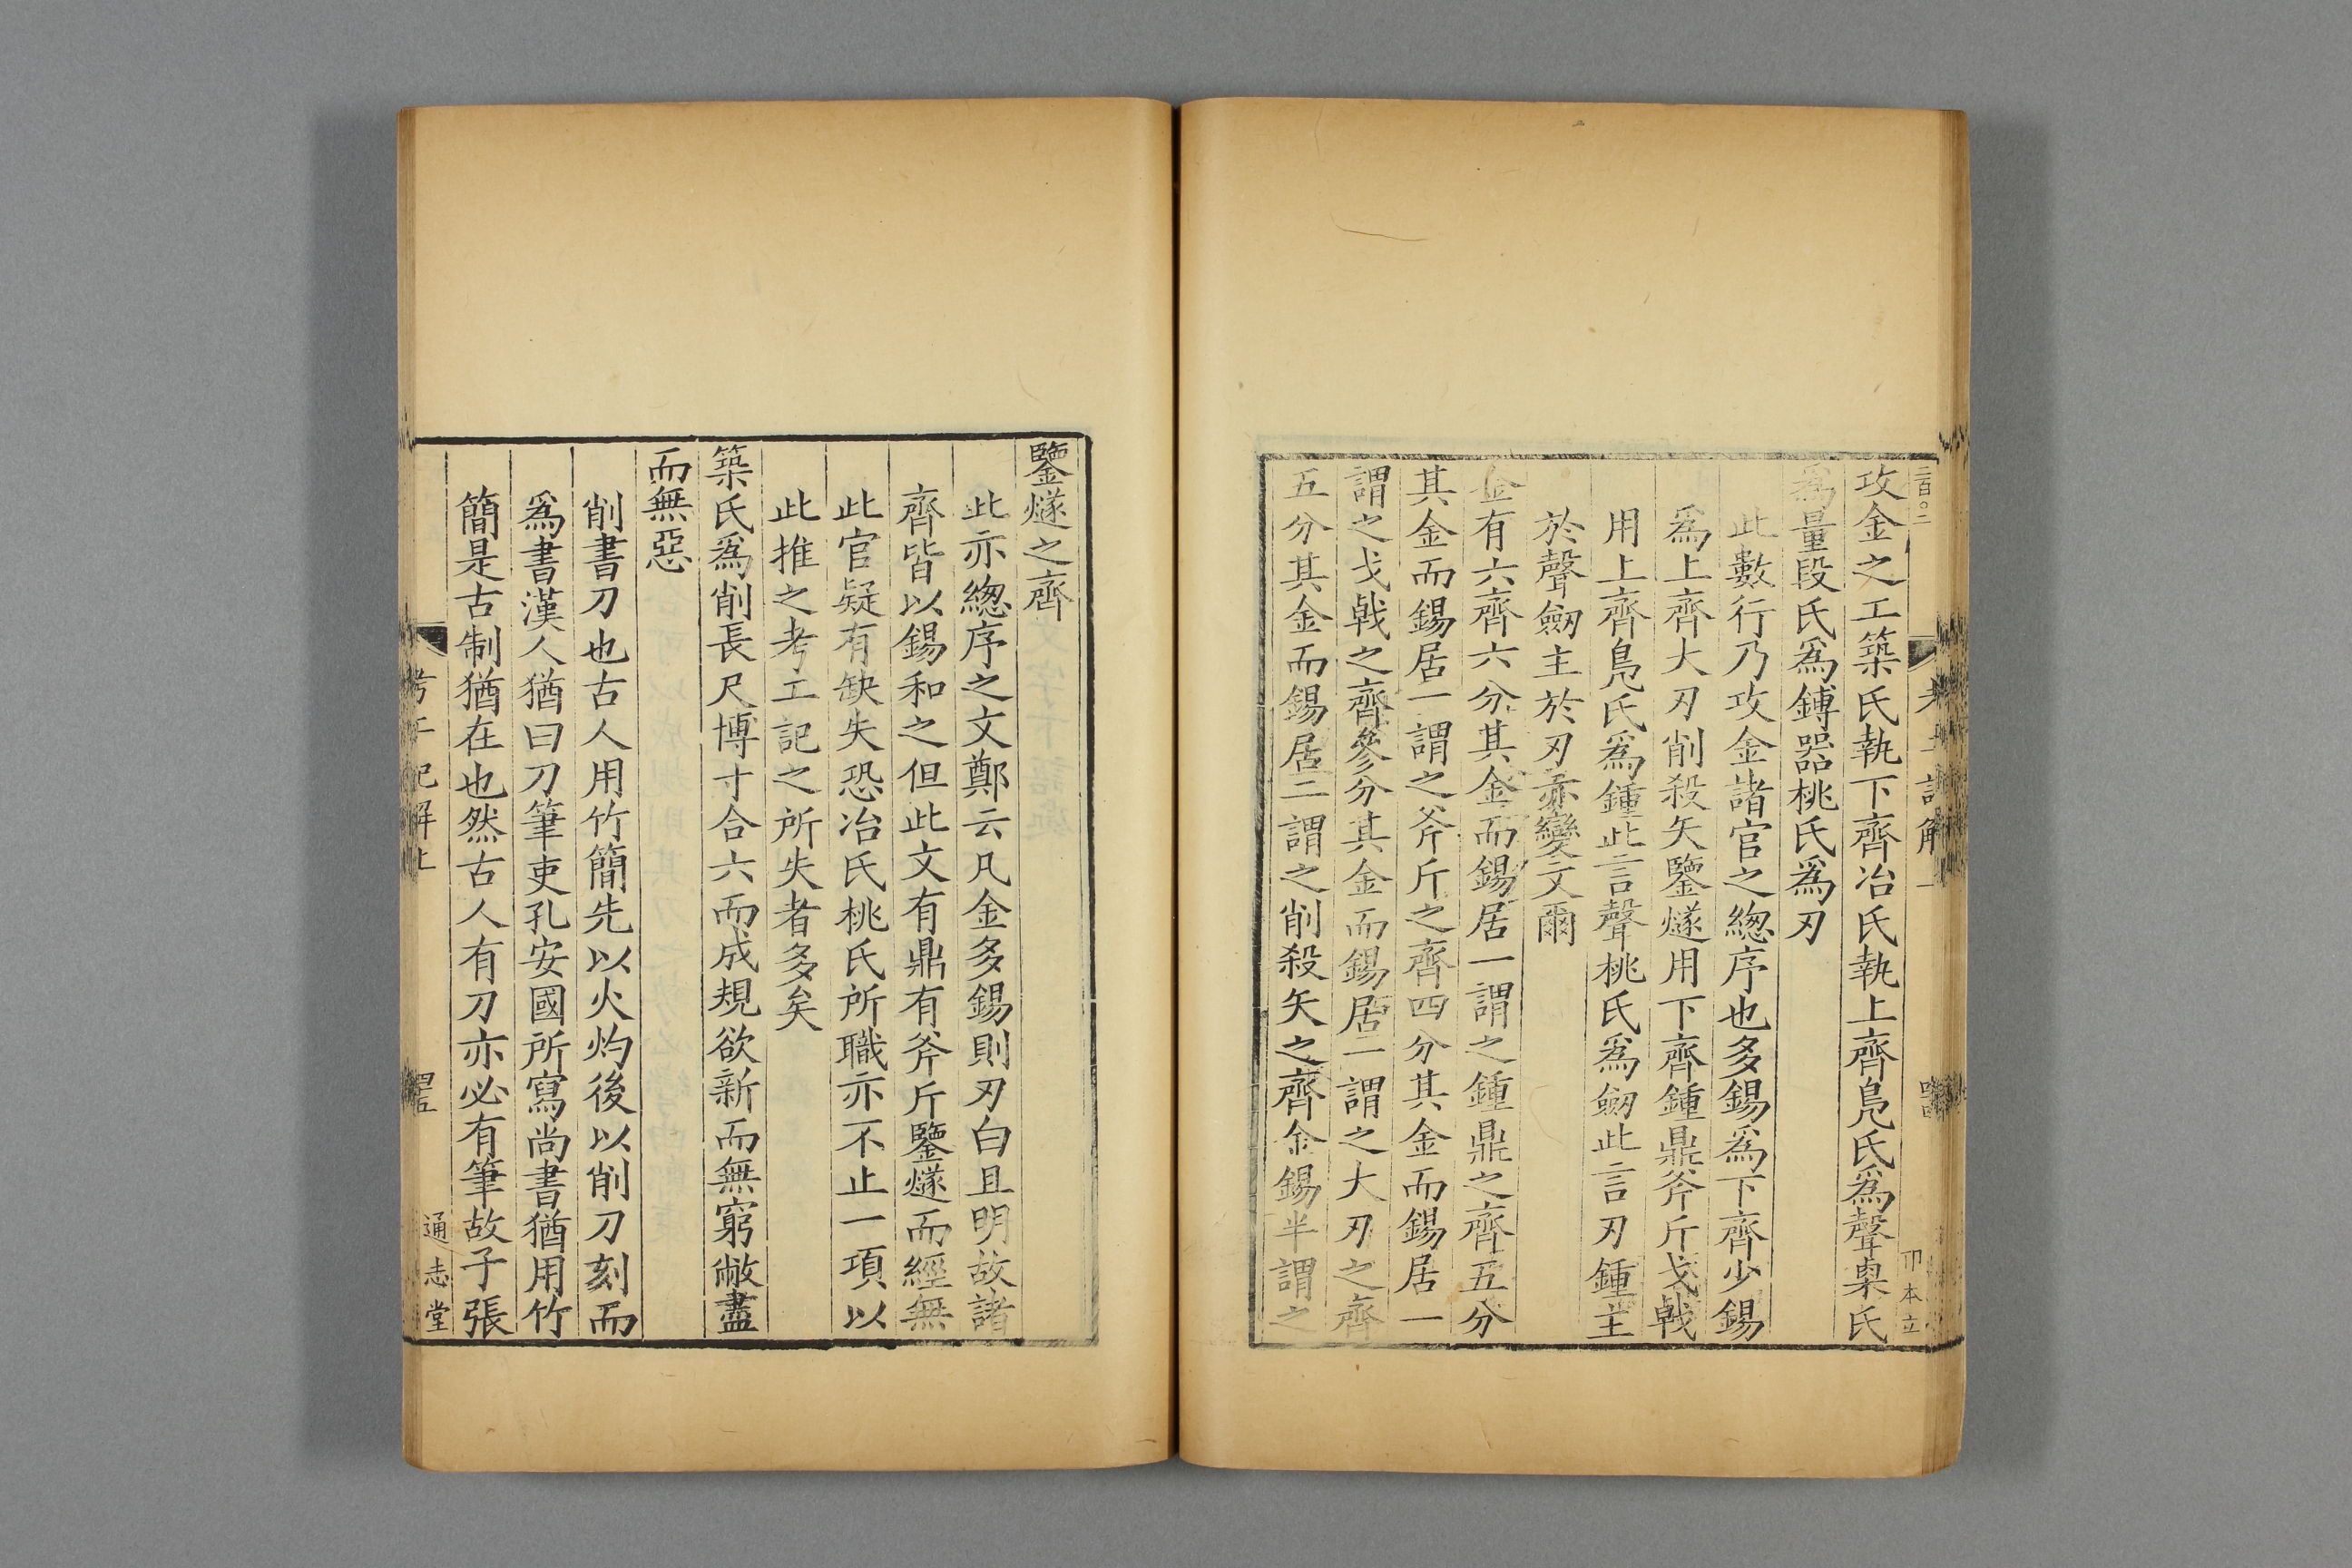 攻金之工築氏執下齊冶氏執上齊鳧氏爲聲㮚氏
爲量段氏爲鎛器桃氏爲刃
此數行乃攻金諸官之緫序也多錫爲下齊少錫
爲上齊大刃削殺矢鑒燧用下齊鍾鼎斧斤戈戟
用上齊鳧氏爲鍾此言聲桃氏爲劒此言刃鍾主
於聲劒主於刃亦變文爾
金有六齊六分其金而錫居一謂之鍾鼎之齊五分
其金而錫居一謂之斧斤之齊四分其金而錫居一
謂之戈戟之齊參分其金而錫居一謂之大刃之齊
五分其金而錫居二謂之削殺矢之齊金錫半謂之
鑒燧之齊
此亦緫序之文鄭云凡金多錫則刃白且明故諸
齊皆以錫和之但此文有鼎有斧斤鑒燧而經無
此官疑有缺失恐冶氏桃氏所職亦不止一項以
此推之考工記之所失者多矣
築氏爲削長尺博寸合六而成規欲新而無窮敝盡
而無惡
削書刀也古人用竹簡先以火灼後以削刀刻而
爲書漢人猶曰刀筆吏孔安國所寫尚書猶用竹
簡是古制猶在也然古人有刀亦必有筆故子張
考工記解上
通志堂